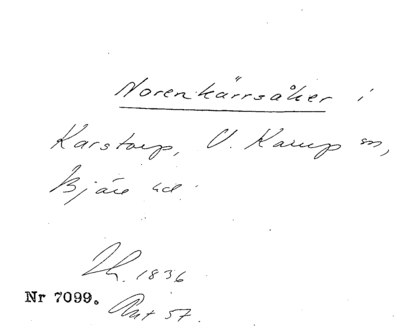 Norenkärrsåker i
Karstorp, V. Karup sn,
Bjäre hd.
Lh. 1836
Nr 7099. Akt 57.